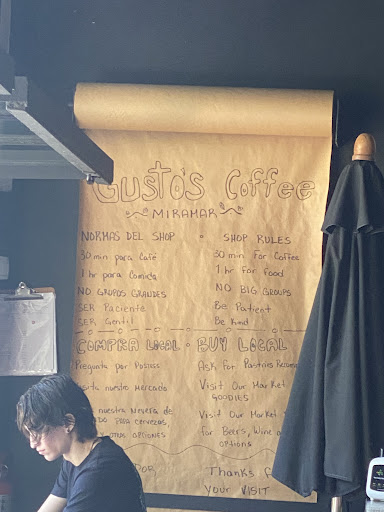 Gusto's Coffee
MIRAMAR
NORMAS DEL SHOP = SHOP RULES
30 min para Café 30 min For Coffee
1 hr para Comida 1 hr For food
NO GRUPOS GRANDES NO BIG GROUPS
SER Paciente Be Patient
SER Gentil Be Kind
COMPRA LOCAL • BUY LOCAL
Pregunta por Ask For Pastries
nuestro Mercado Visit Our Market
GOODIES
nuestra Nevera de Visit Our Market
PARA CERVEZAS, for Beers, Wine
OPTIONES OPTIONS
POR Thanks
YOUR VISIT